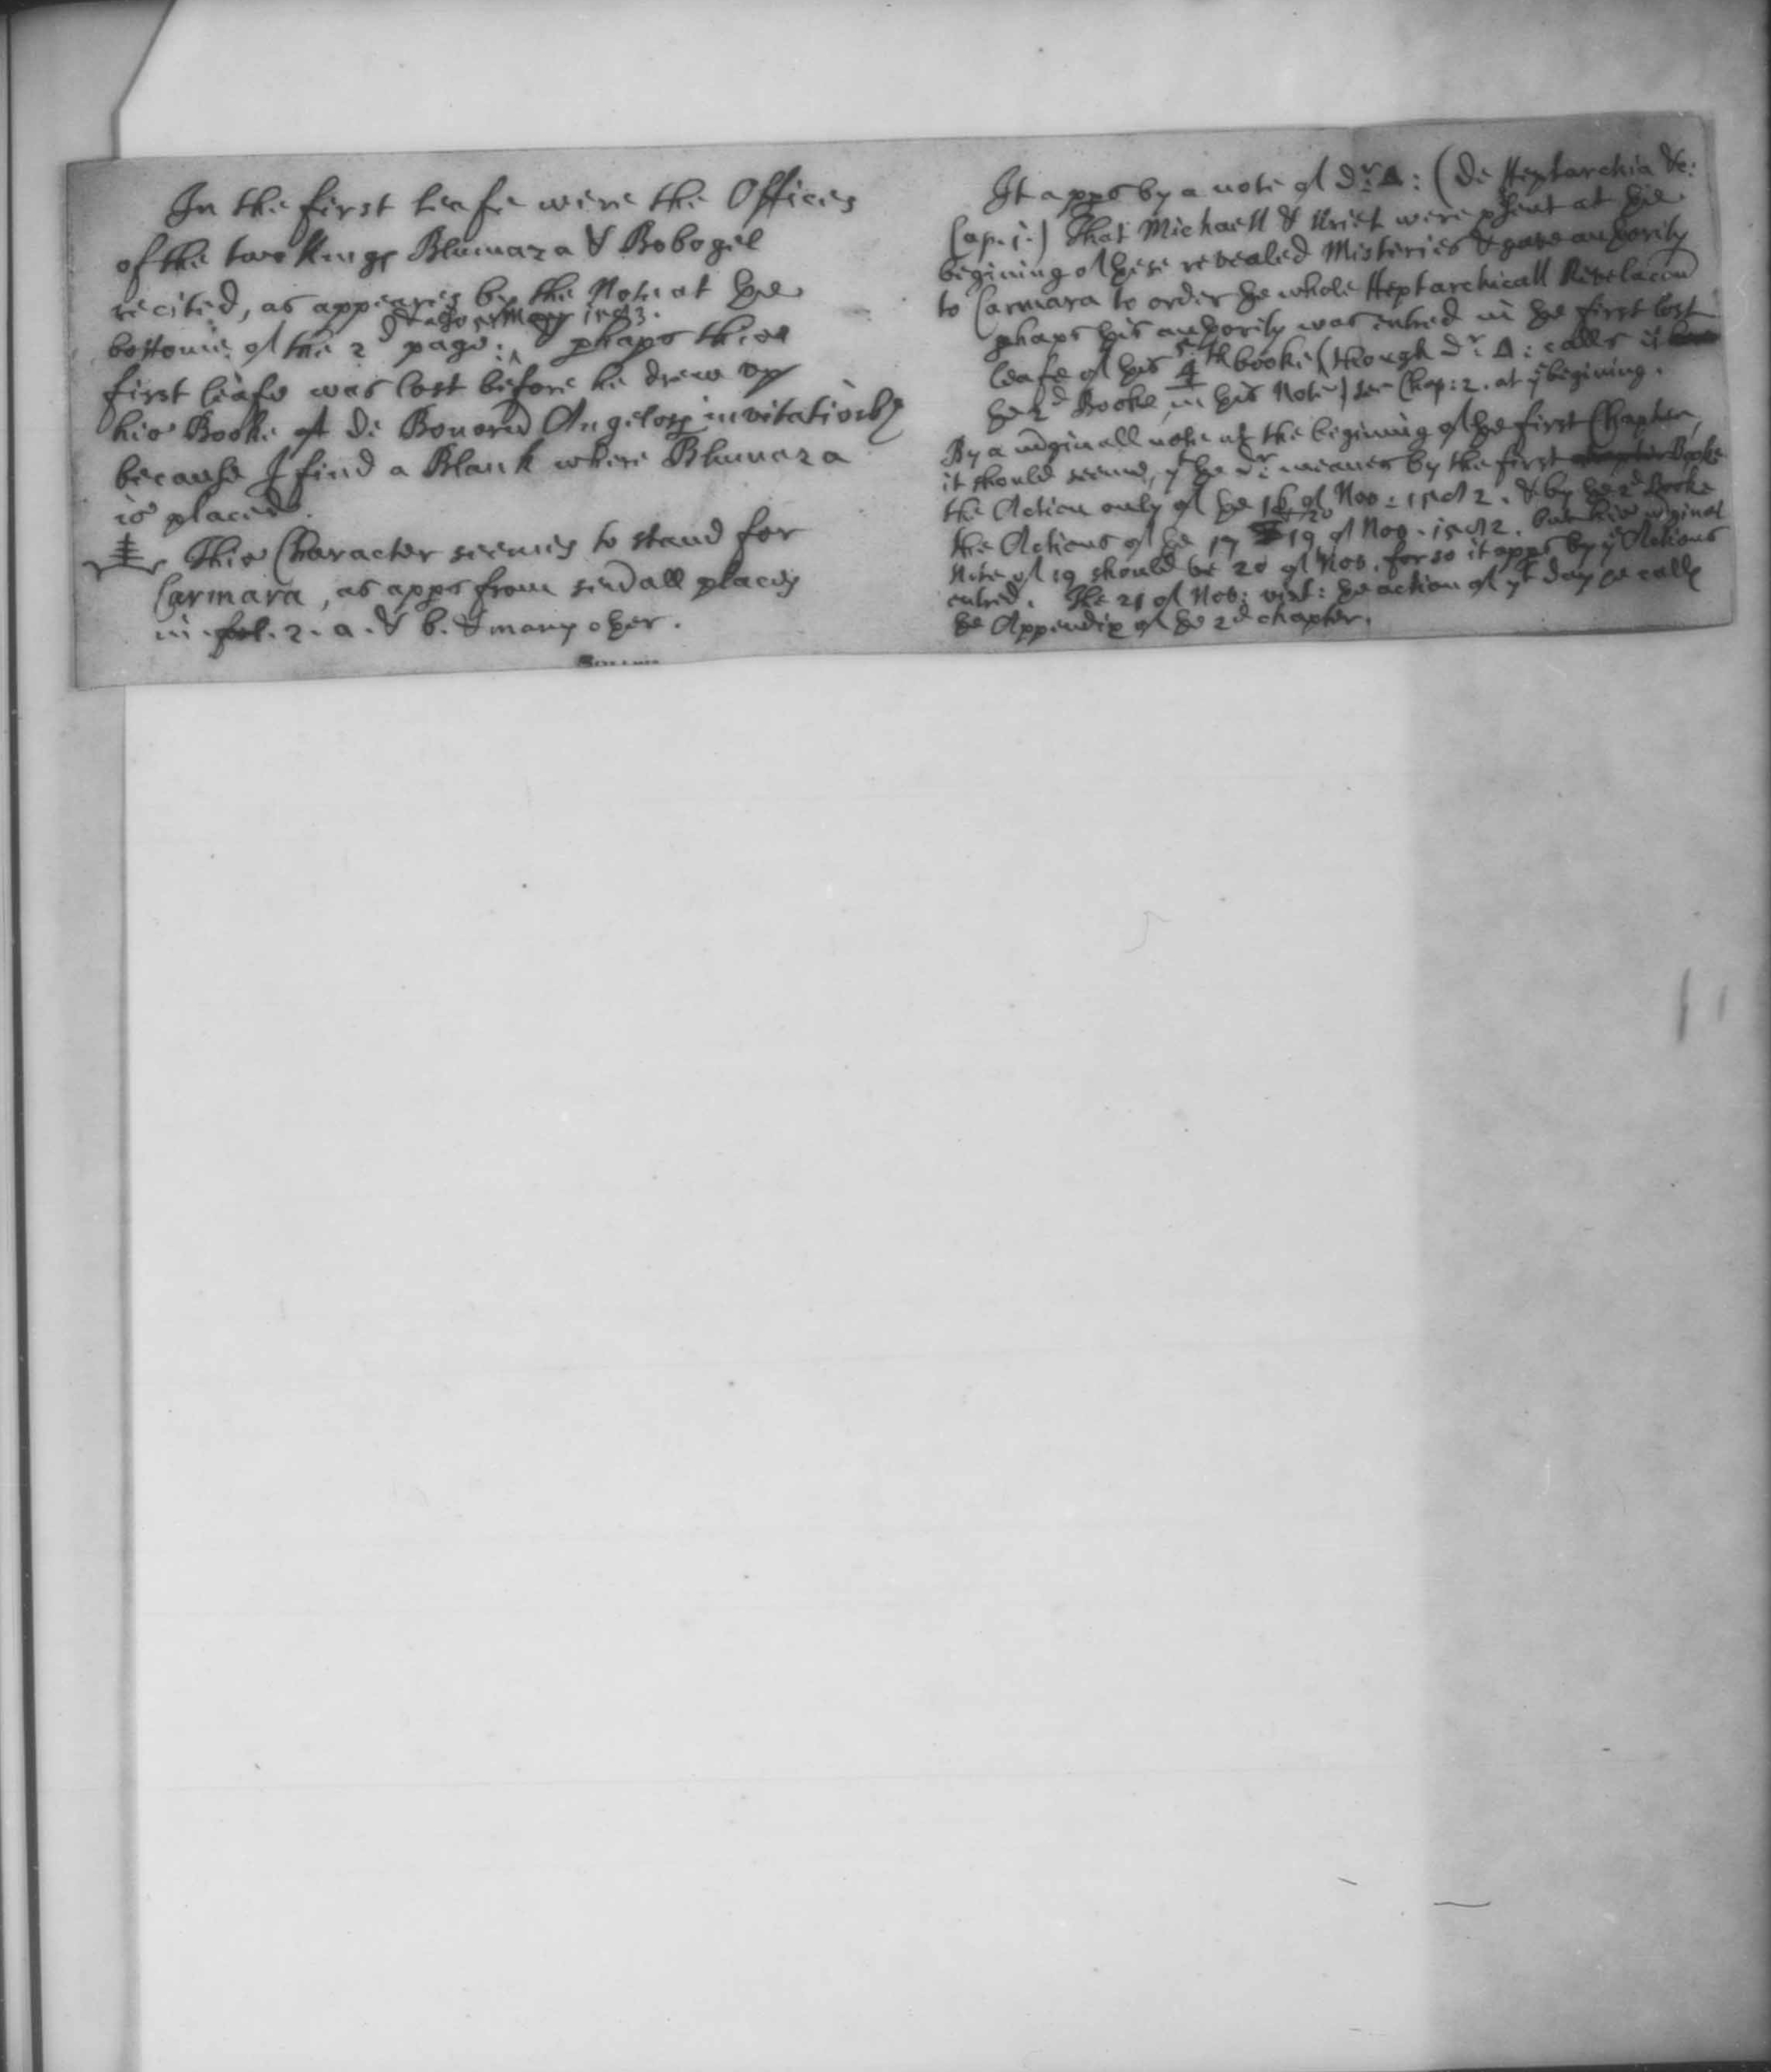 In the first leafe were the Offices
of the two Kings Blumaza & Bobogel
recited, as appeares by the Note at the
bottome of the 2d page. phaps this
first leafe was lost before he drew up
his Booke of De Bonorum Angelorum invitationibus
because I find a Blank where Blumaza
is placed.
This Character seemes to stand for
Carmara, as apps from sevall places
in fol. 2. a. & b. & many other.
It apps by a note of Dr. Δ: (De Heptarchia &c:
Cap. 1.) That Michaell & Uriel were psent at the
begining of these revealed Misteries & gave authority
to Carmara to order the whole Heptarchicall Revelacon
phaps this authority was entred in the first lost
leafe of this 4 5th booke (though Dr. Δ: calls it
the 2d Booke in this Note) see Chap: 2. at ye begining.
By a mginall note at the begining of the first Chapter,
it should seeme, yt the Dr. meanes by the first Booke
the Action only of the 16 of Nov: 1582. & by the 2d Booke
the Actions of the 17 19 of Nov. 1582. but this mginal
Note of 19 should be 20 of Nov. for so it apps by ye Actions
entred. The 21 of Nov: vizt: the action of yt day he calls
the Appendix of the 2d chapter.